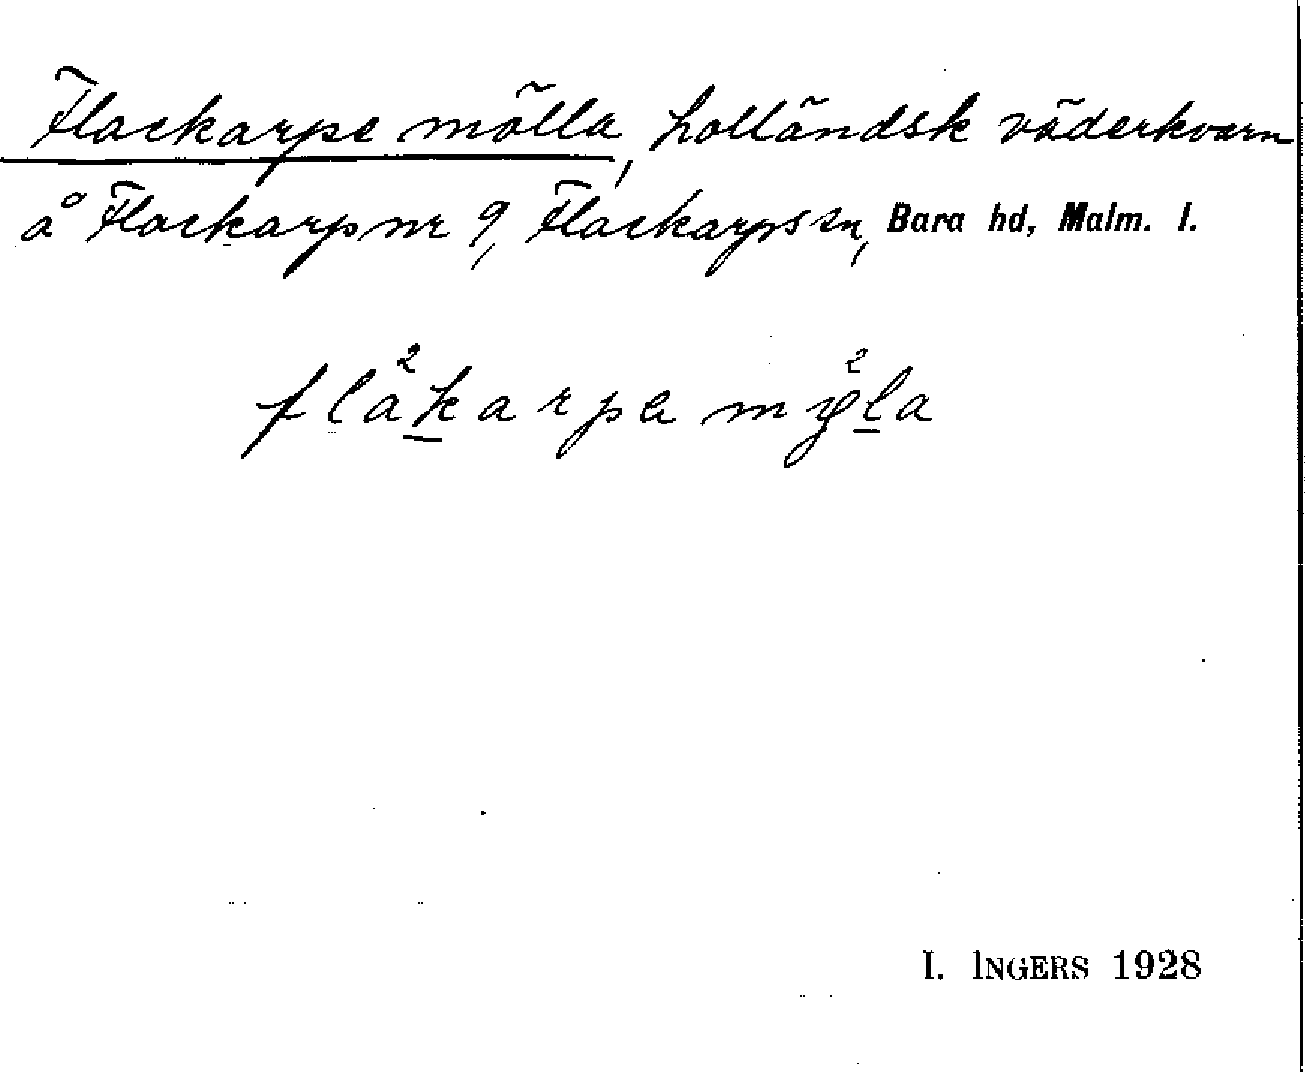 Flackarpe mölla, holländsk väderkvarn
å Flackarp nr 9, Flackarps sn, Bara hd, Malm. l.
flåkarpa myøla
I. INGERS 1928